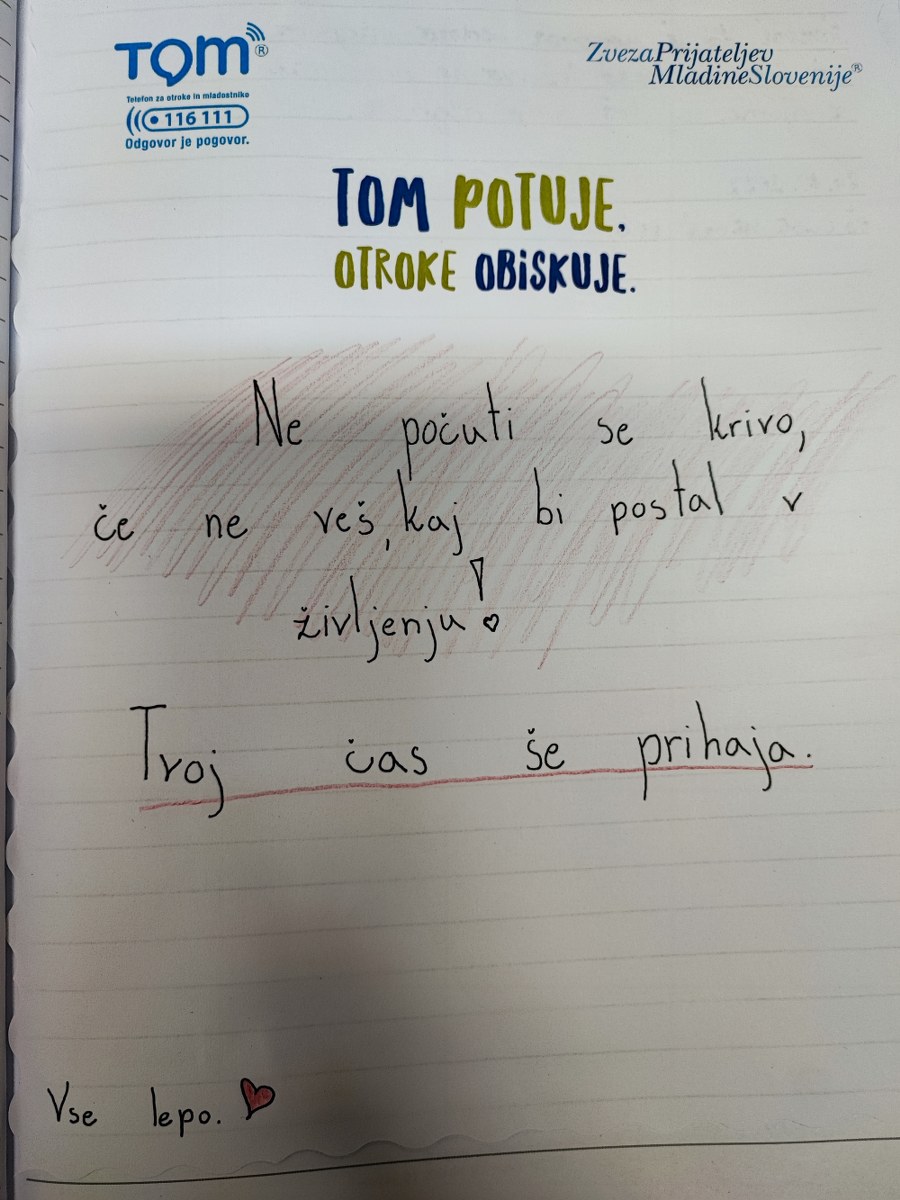 TOM®
ZvezaPrijateljev
MladineSlovenije®
Telefon za otroke in mladostnike
116 111
Odgovor je pogovor.
TOM POTUJE.
OTROKE OBiSKUJE.
Ne počuti se krivo,
če ne veš, kaj bi postal v
življenju!
Tvoj čas še prihaja.
Vse lepo.